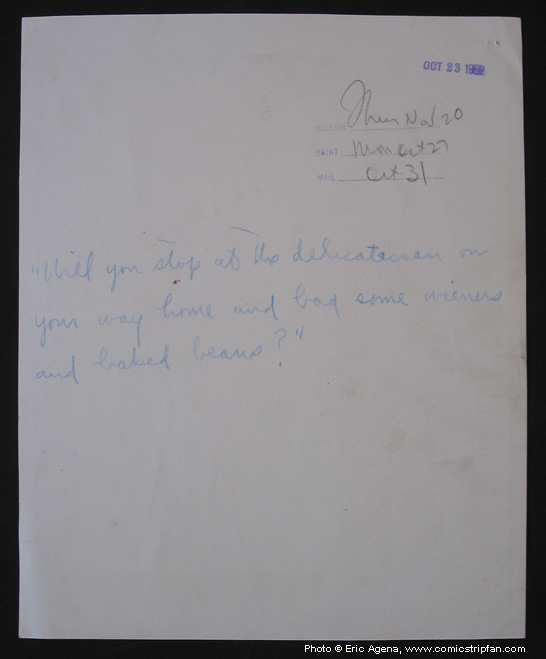 OCT 23 1952
RELEASE Thur Nov 20
PRINT Mon Oct 27
MAIL Oct 31
"Will you stop at the delicatessen on
your way home and bag some wieners
and baked beans?"
Photo © Eric Agena, www.comicstripfan.com